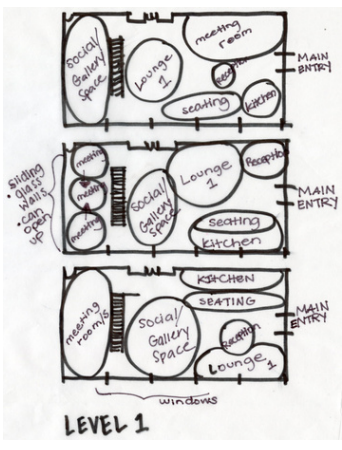 Social/
Gallery
space
Lounge
1
meeting
room
Reception
seating
kitchen
MAIN
ENTRY
• sliding
glass
walls
• can
open
up
meeting
meeting
meeting
Social/
Gallery
Space
Lounge
1
Reception
seating
kitchen
MAIN
ENTRY
meeting
room/s
Social/
Gallery
Space
KITCHEN
SEATING
Reception
Lounge 1
MAIN
ENTRY
windows
LEVEL 1